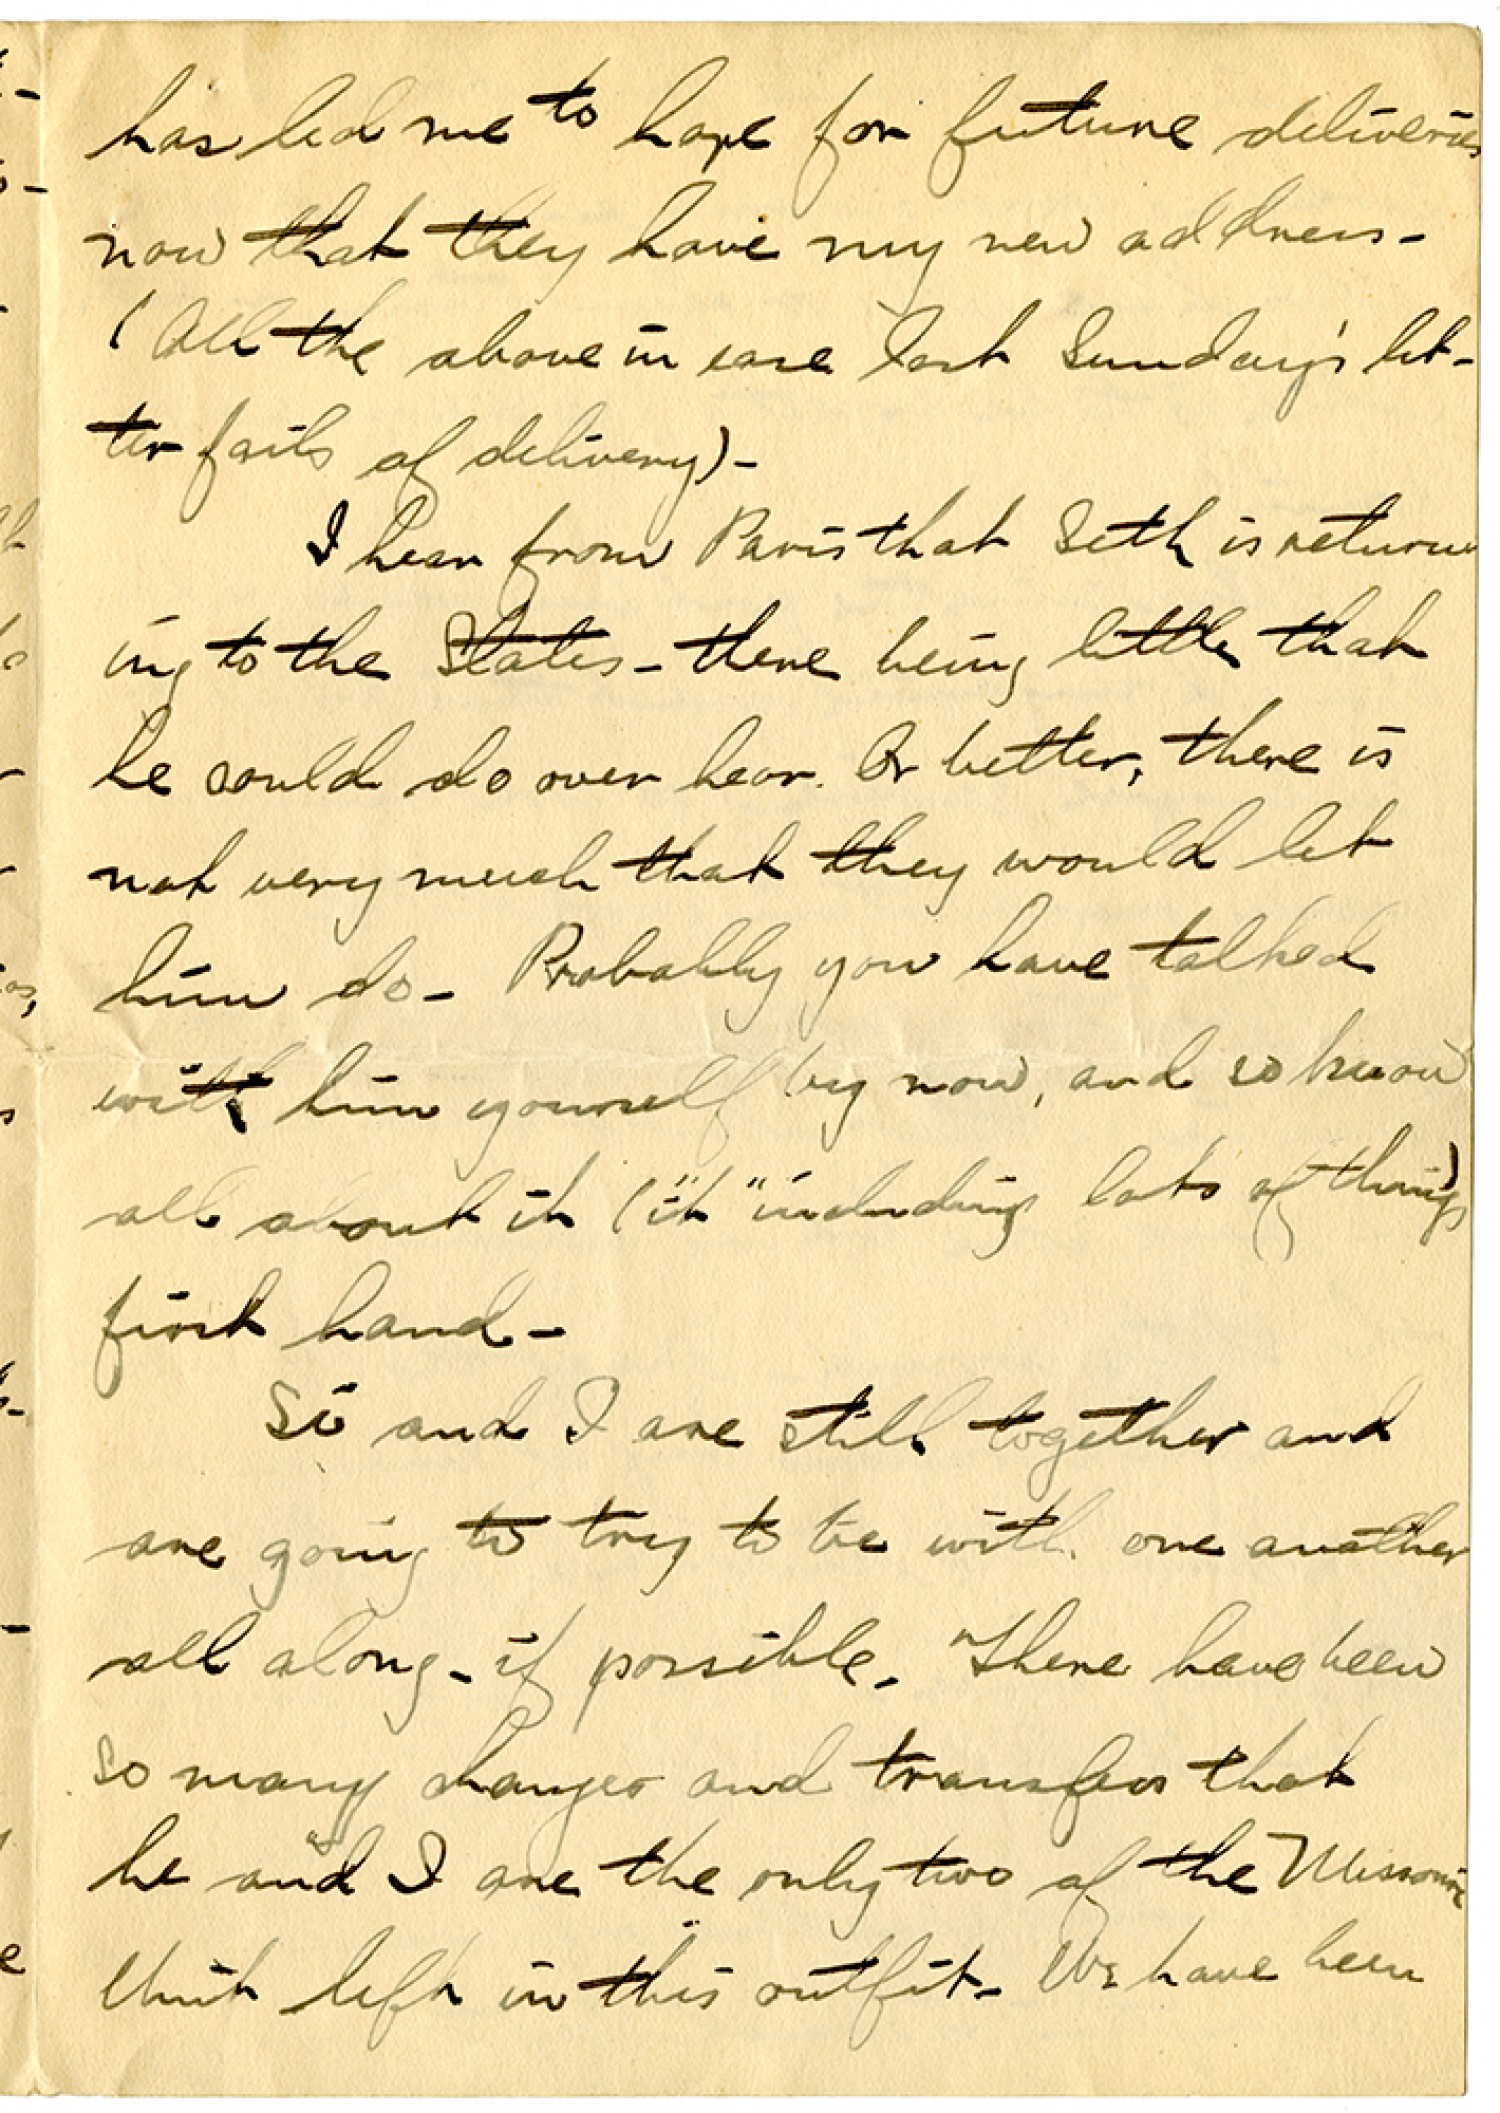 has led me to hope for future deliveries
now that they have my new address -
(All the above in case last Sunday's let-
ter fails of delivery) -
I hear from Paris that Seth is return
ing to the States - there being little that
he could do over hear. Or better, there is
not very much that they would let
him do - Probably you have talked
with him yourself by now, and so know
all about it ("it" including lots of things)
first hand -
Si and I are still together and
are going to try to be with one another
all along - if possible. There have been
so many changes and transfers that
he and I are the only two of the Missouri
Unit left in this outfit - We have been